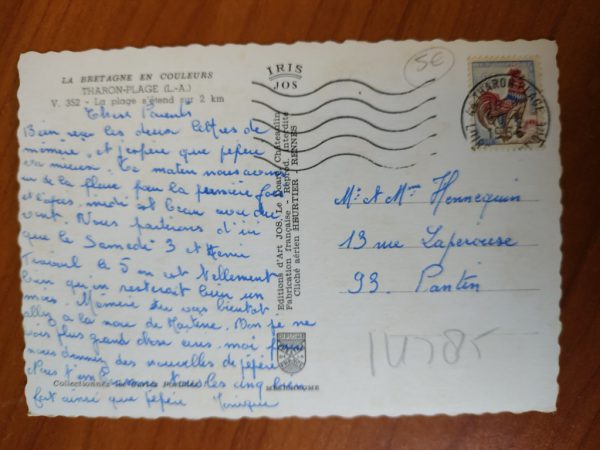 LA BRETAGNE EN COULEURS
THARON-PLAGE (L.-A.)
V. 352 - La plage s'étend sur 2 km
Chers Parents
Bien reçu les deux lettres de
mémère, et j'espère que pépère
va mieux. Ce matin nous avons
eu de la pluie pour la première fois
et l'après midi est beau avec du
vent. Nous partirons d'ici
que le Samedi 3 et
travail le 5 on est tellement
bien qu'on resterait bien un
mois. Mémère tu vas bientôt
aller à la noce de Martine. Bon je ne
vois plus grand chose
nous donner des nouvelles de pépère
tous les cinq
fait ainsi que pépère Monique
Collectionnez
IRIS
JOS
Editions d'Art JOS, Le Doaré, Châteaulin
Fabrication française - Reprod. interdite
Cliché aérien HEURTIER, RENNES
5€
THARON-PLAGE
Mr et Mme Hennequin
13 rue Laperouse
93. Pantin
14785